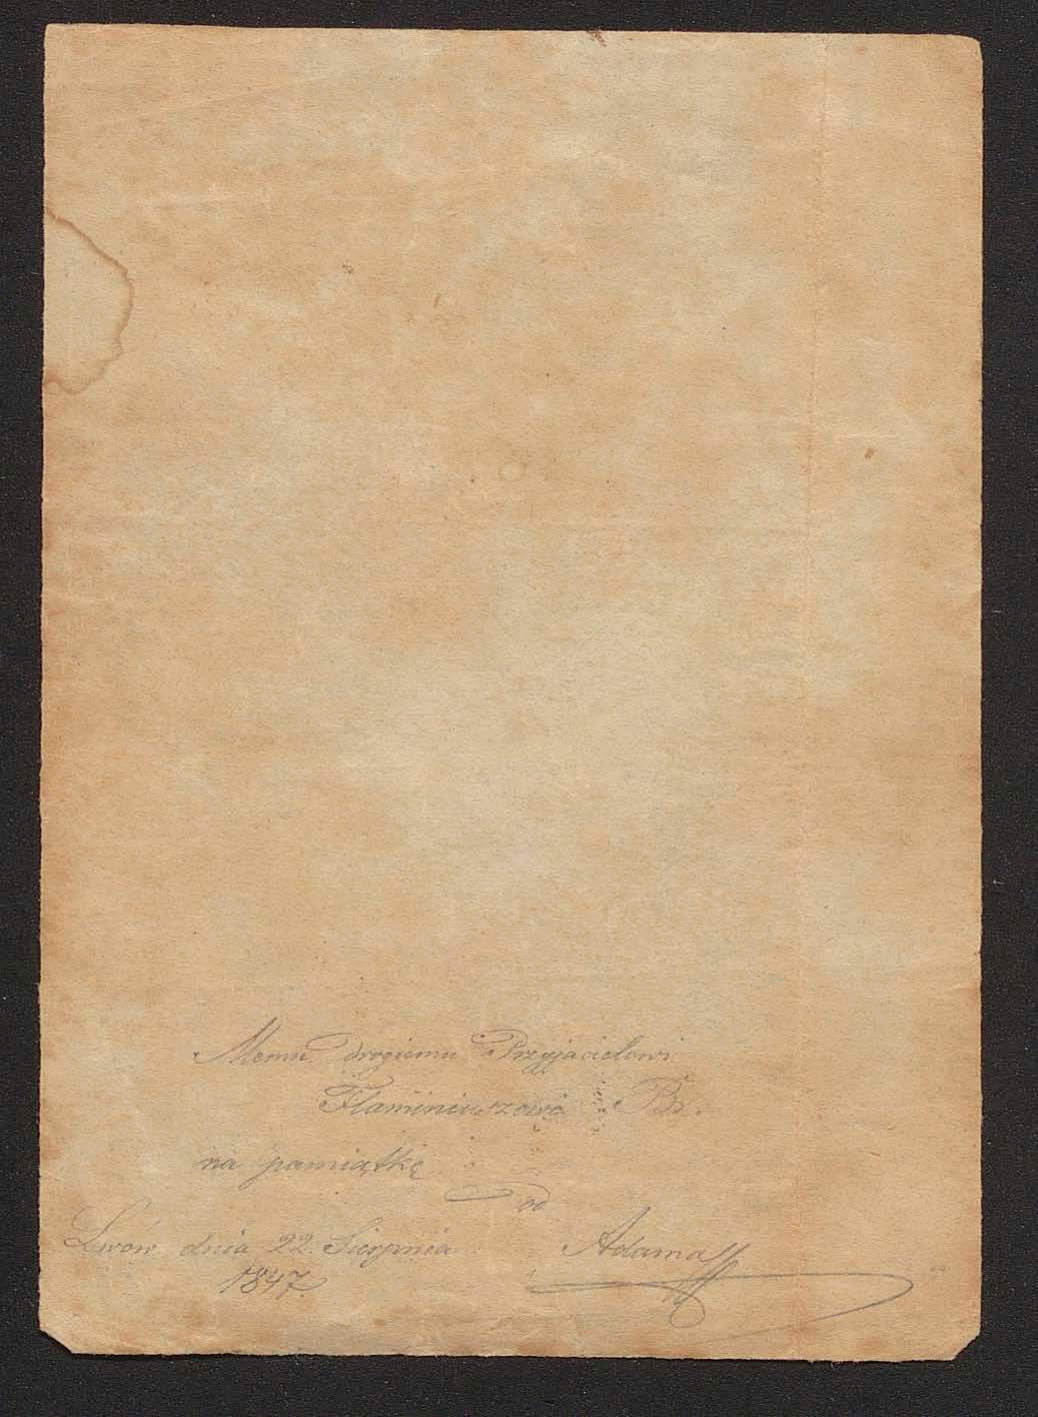 Memu drogiemu Przyjacielowi
Flaminiuszowi Br.
na pamiątkę
od
Lwów dnia 22. Sierpnia
Adama
1847.